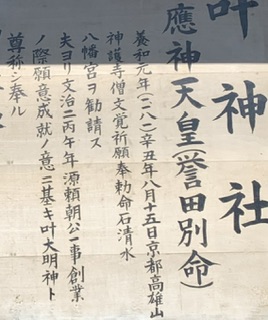 叶神社
應神天皇(誉田別命)
養和元年(一一八一)辛丑年八月十五日京都高雄山
神護寺僧文覚祈願奉勅命石清水
八幡宮ヲ勧請ス
夫ヨリ文治二丙午年源頼朝公一事創業
ノ際願意成就ノ意ニ基キ叶大明神ト
尊称シ奉ル